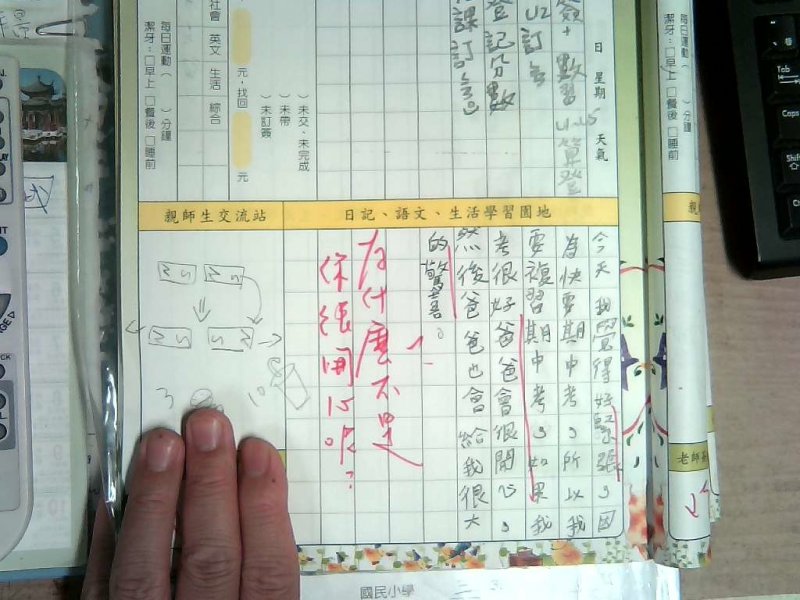 日 星期 5 天氣
簽+ 數習 U15 算登
U2 訂正
登記分數
課訂正
未交、未完成
未帶
未訂簽
元，找回
元
社會 英文 生活 綜合
每日運動 ( ) 分鐘
潔牙：□早上 □餐後 □睡前
日記、語文、生活學習園地
親師生交流站
今天我覺得好緊張，因
為快要期中考，所以我
要複習期中考，如果我
考很好爸爸會很開心，
然後爸爸也會給我很大
的驚喜。
為什麼不是
你很開心呢？
N S
N S
N S
S N
3
108
每日運動 ( ) 分鐘
潔牙：□早上 □餐後 □睡前
老師
國民小學
Tab
Caps
Shift